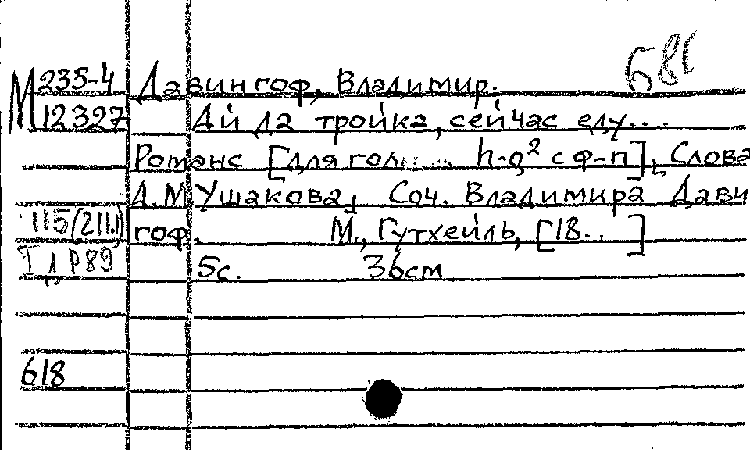 М 235-4 Давингоф, Владимир. 681
12327 Ай да тройка, сейчас еду...
Романс [для гол. ... h-g² с ф-п], Слова
А.М. Ушакова, Соч. Владимира Дави
115(211.) гоф. М., Гутхейль, [18.. ]
P89 5с. 36см
618